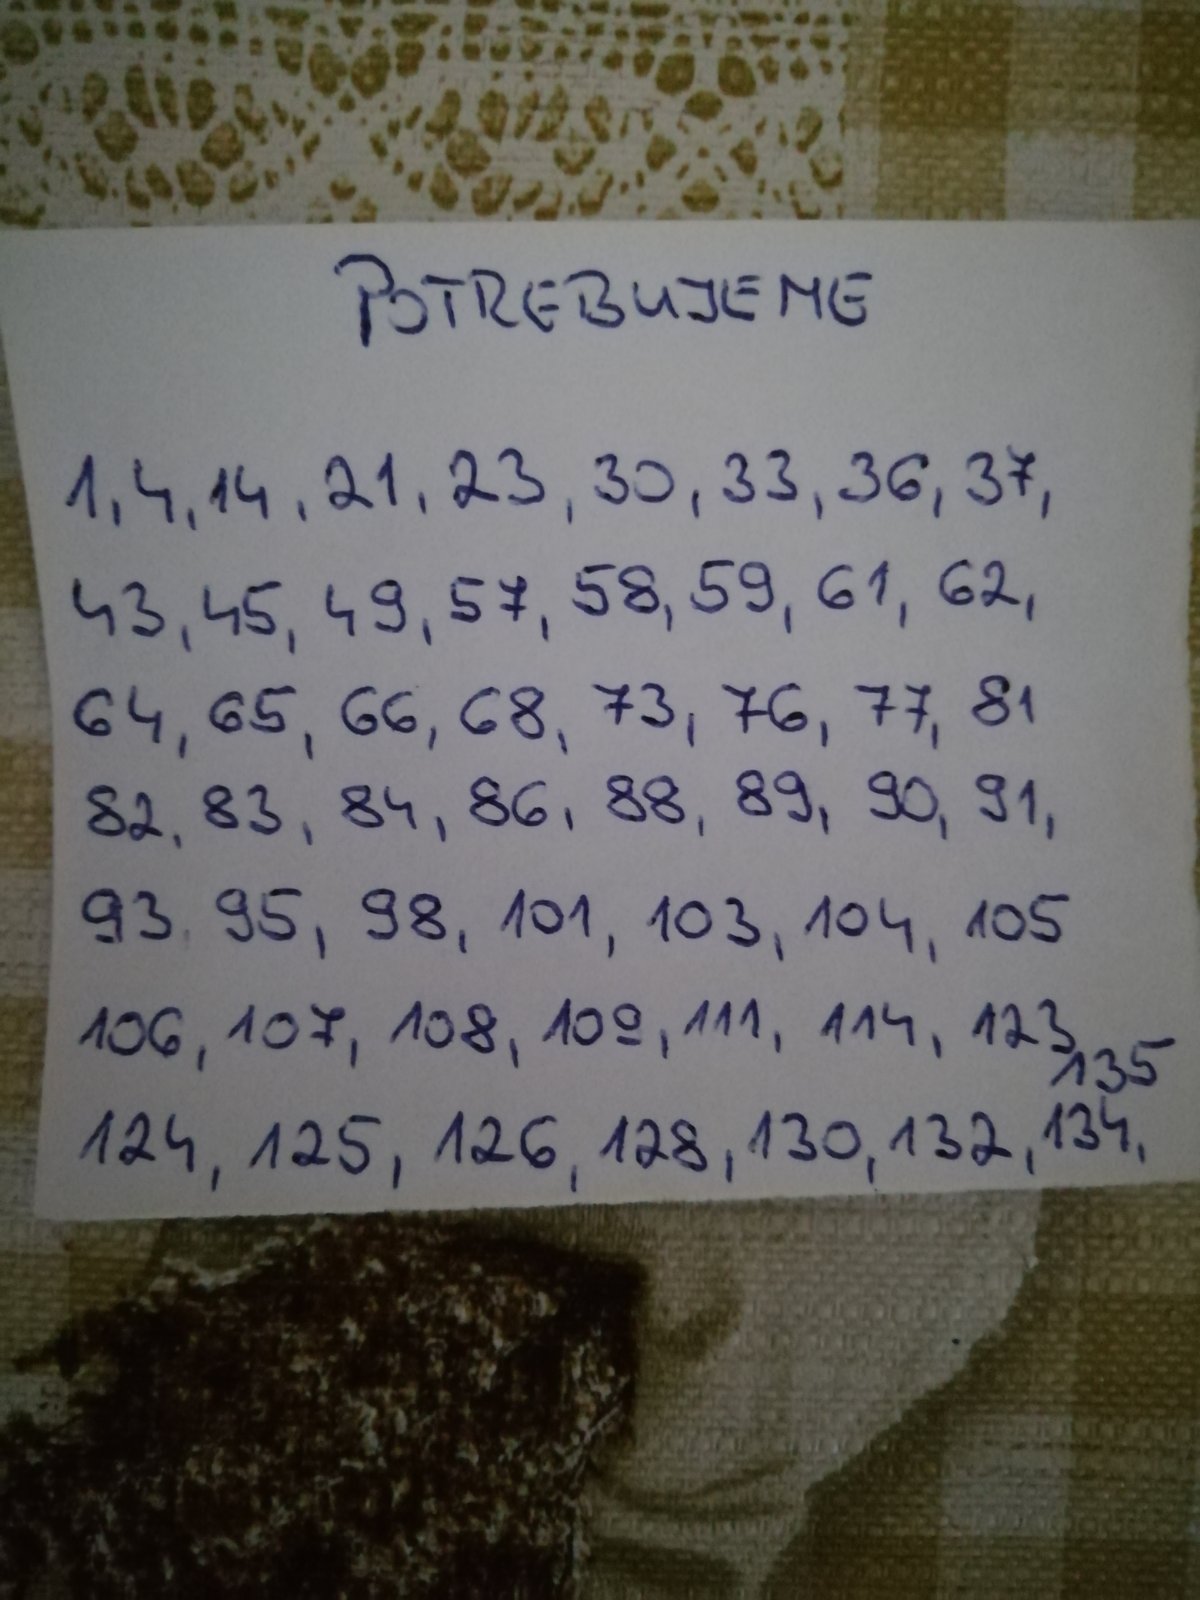 POTREBUJEME
1, 4, 14, 21, 23, 30, 33, 36, 37,
43, 45, 49, 57, 58, 59, 61, 62,
64, 65, 66, 68, 73, 76, 77, 81
82, 83, 84, 86, 88, 89, 90, 91,
93. 95, 98, 101, 103, 104, 105
106, 107, 108, 109, 111, 114, 123
124, 125, 126, 128, 130, 132, 134, 135